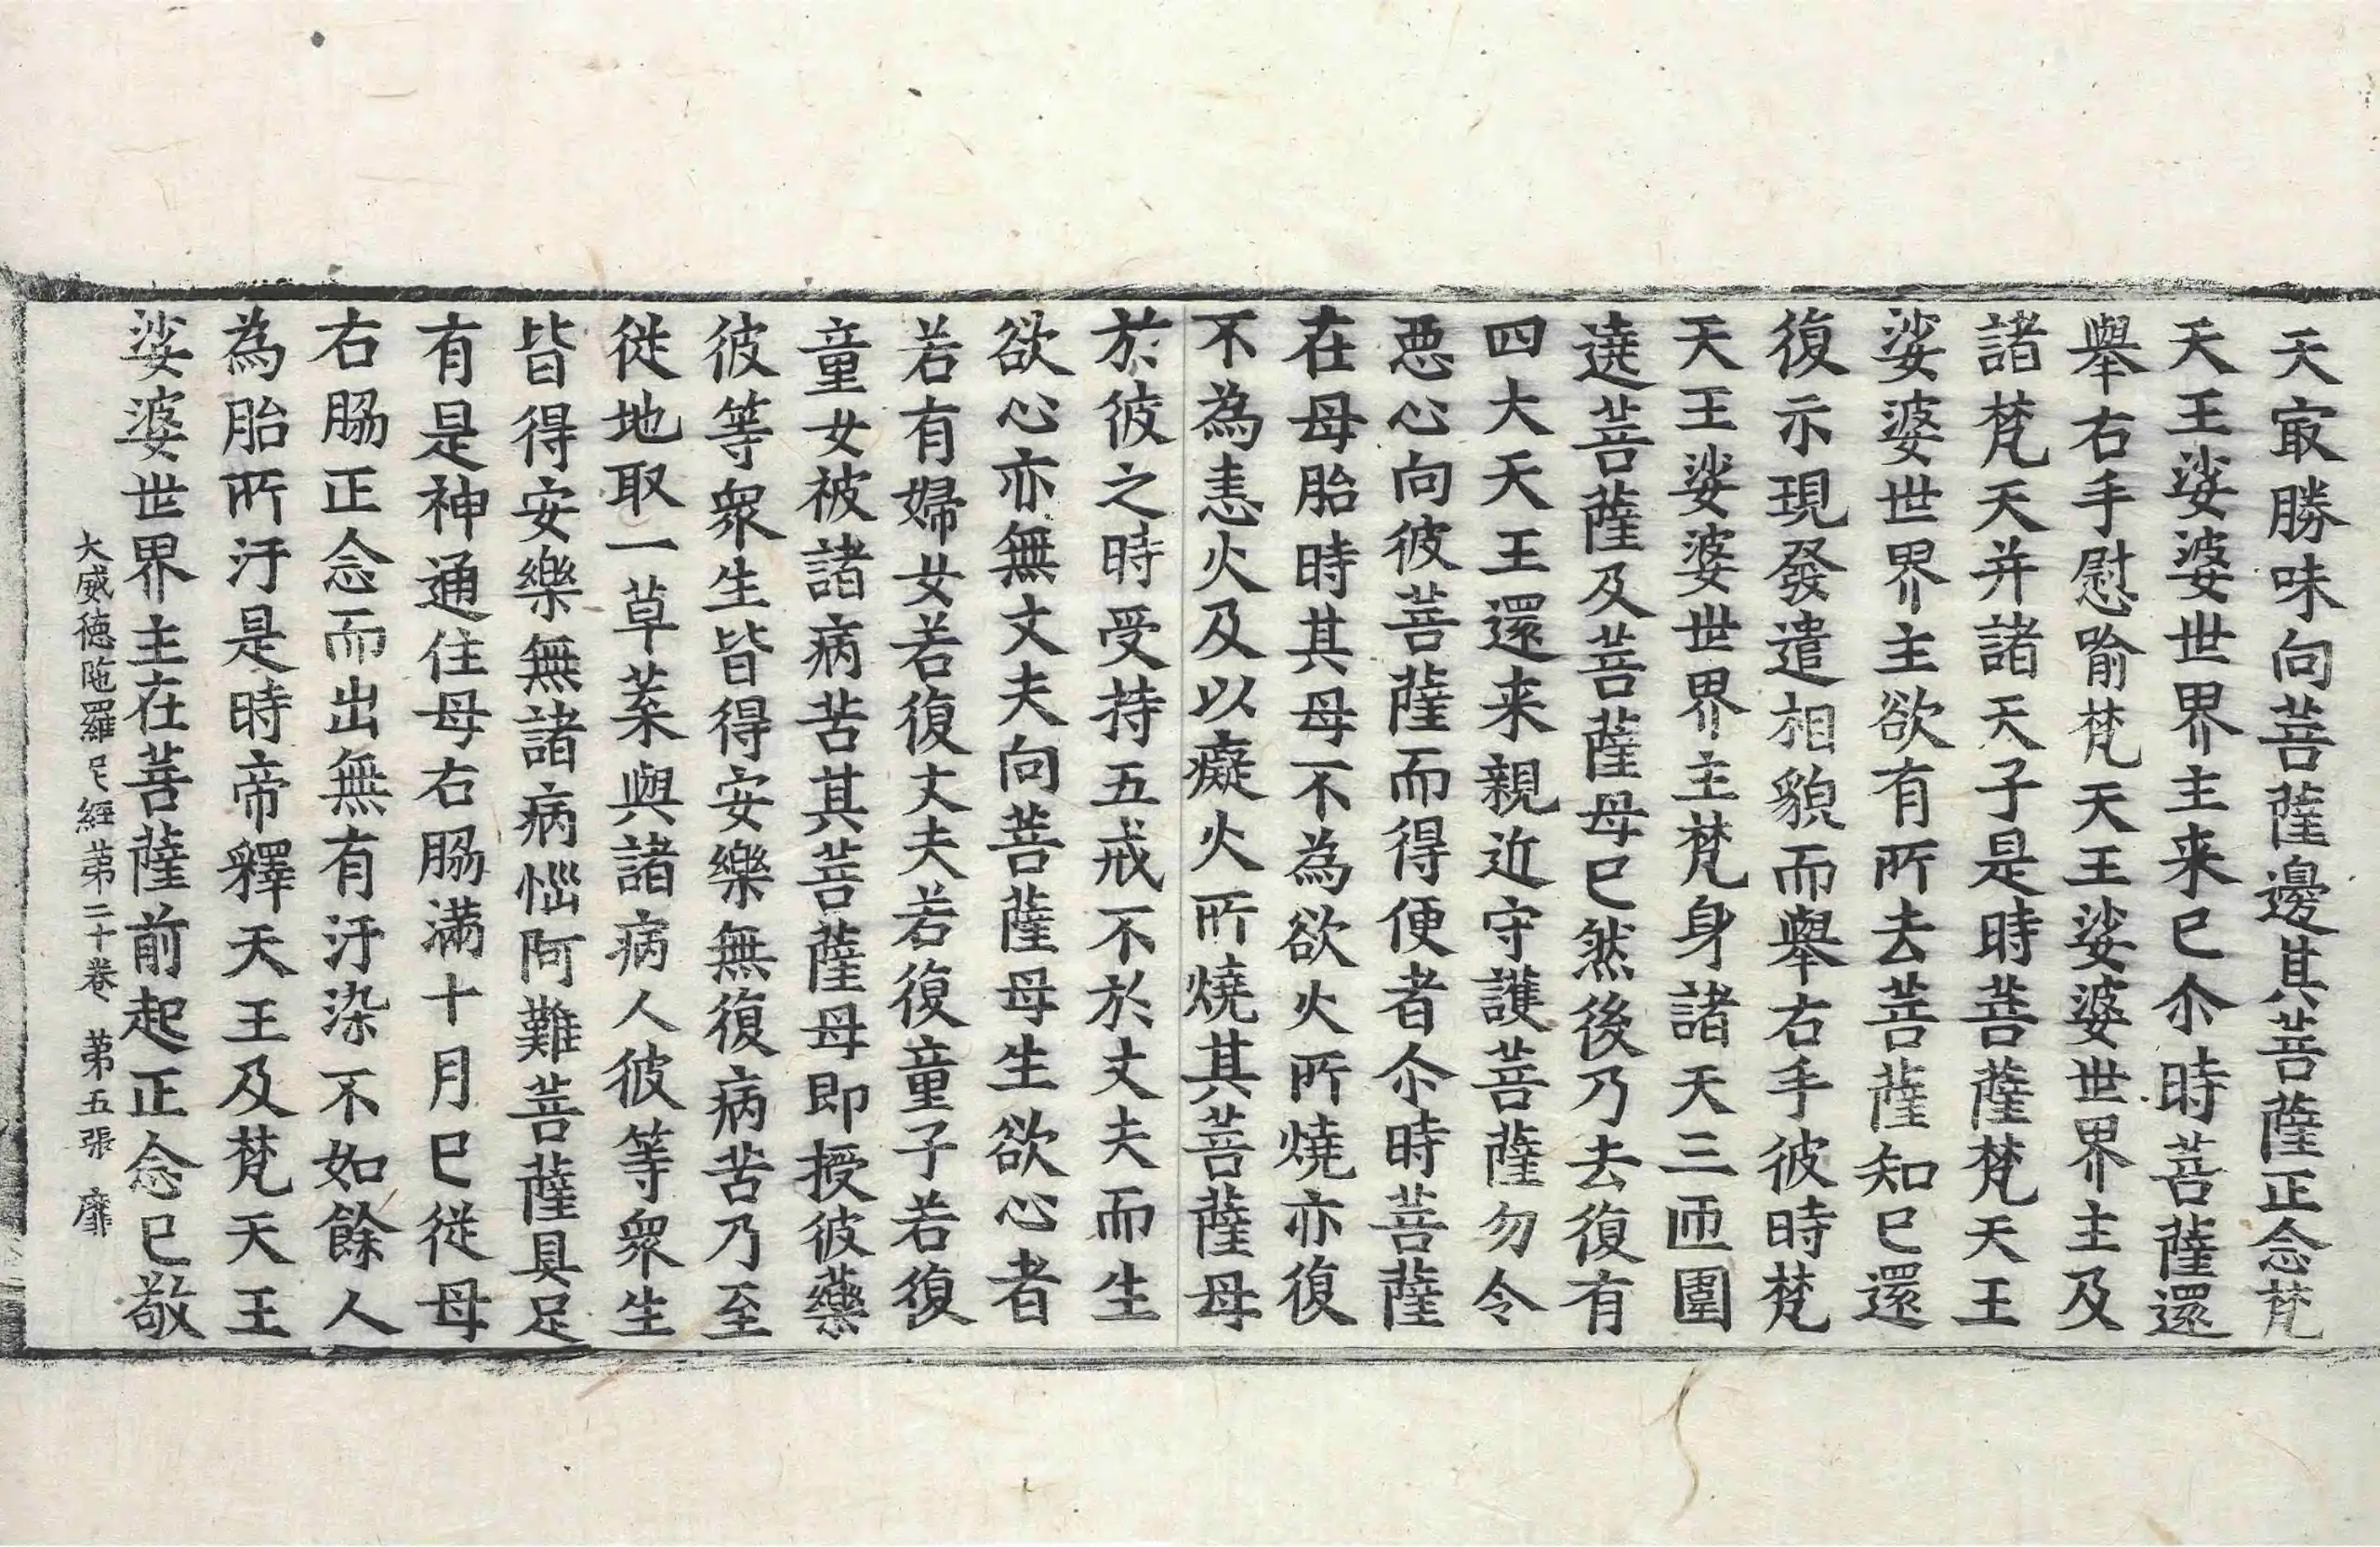 天㝡勝味向菩薩邊其菩薩正念梵
天王娑婆世界主来已尒時菩薩還
舉右手慰喻梵天王娑婆世界主及
諸梵天并諸天子是時菩薩梵天王
娑婆世界主欲有所去菩薩知已還
復示現發遣相貌而舉右手彼時梵
天王娑婆世界主梵身諸天三匝圍
遶菩薩及菩薩母已然後乃去復有
四大天王還来親近守護菩薩勿令
惡心向彼菩薩而得便者尒時菩薩
在母胎時其母不為欲火所燒亦復
不為恚火及以癡火所燒其菩薩母
於彼之時受持五戒不於丈夫而生
欲心亦無丈夫向菩薩母生欲心者
若有婦女若復丈夫若復童子若復
童女被諸病苦其菩薩母即授彼藥
彼等衆生皆得安樂無復病苦乃至
從地取一草葉與諸病人彼等衆生
皆得安樂無諸病惱阿難菩薩具足
有是神通住母右脇滿十月已從母
右脇正念而出無有汙染不如餘人
為胎所汙是時帝釋天王及梵天王
娑婆世界主在菩薩前起正念已敬
大威德陁羅尼經第二十卷 第五張 靡